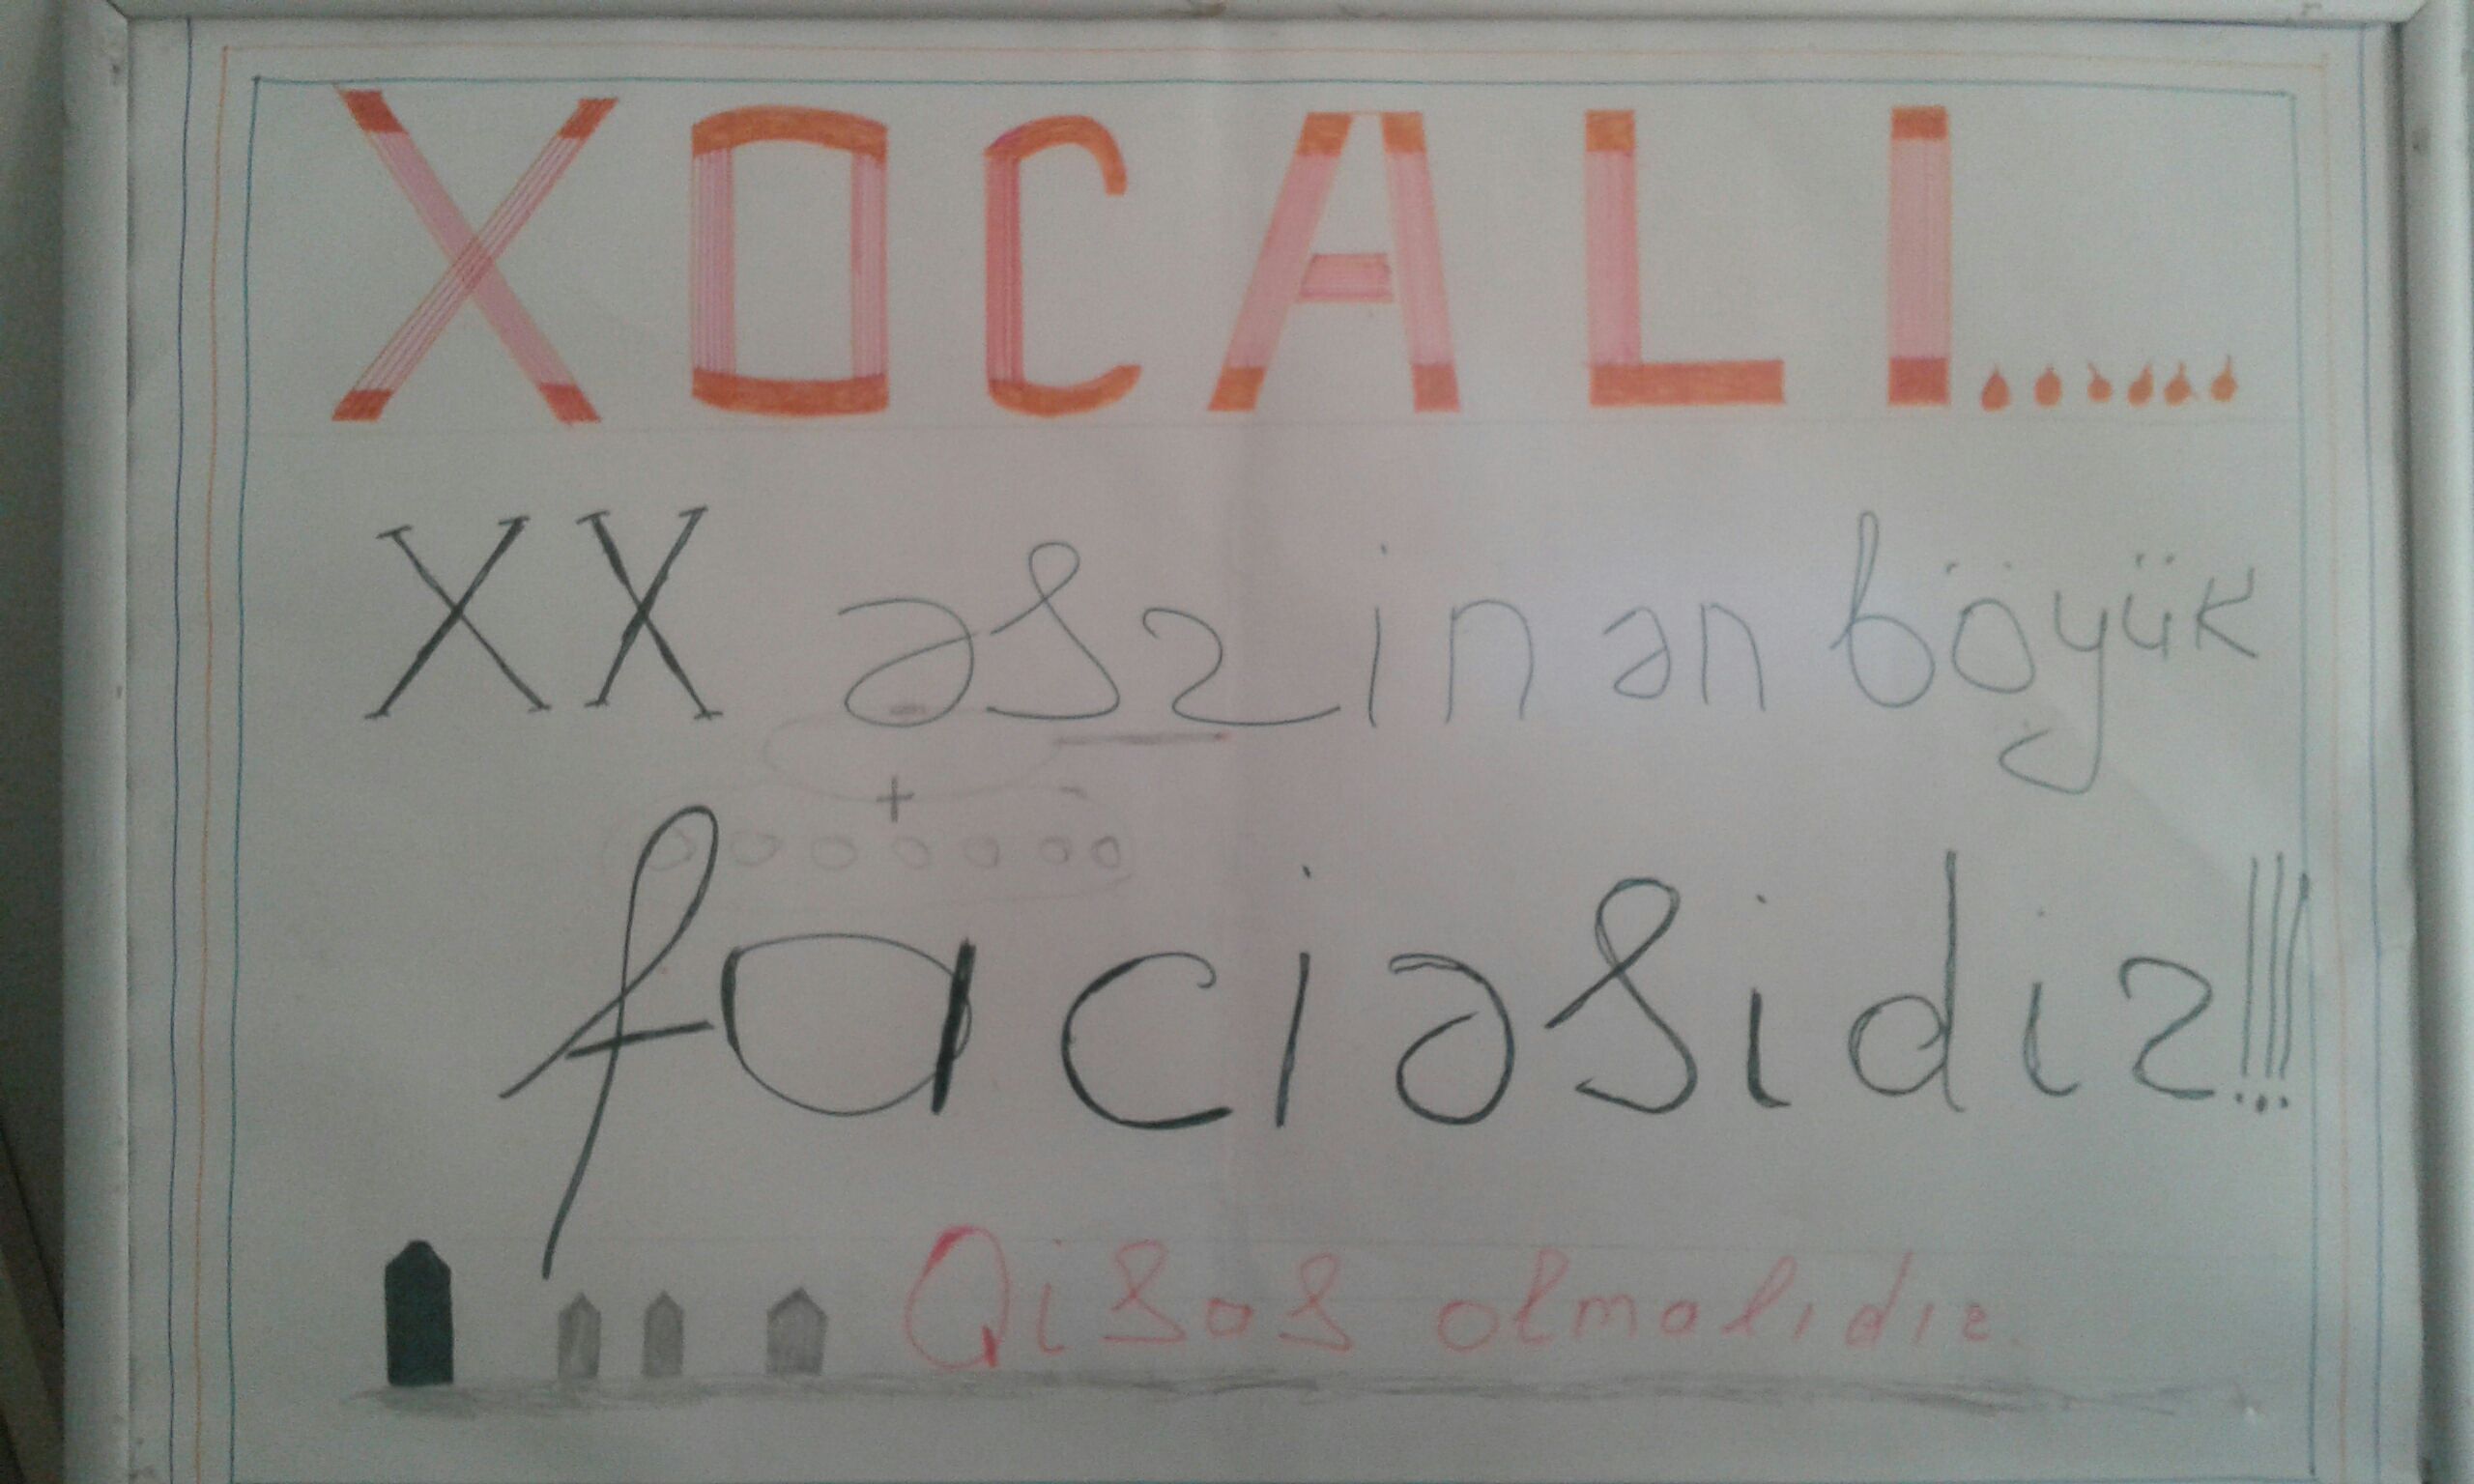 XOCALI......
XX əszin ən böyük
faciəsidir!!!
Qisas olmalıdır.